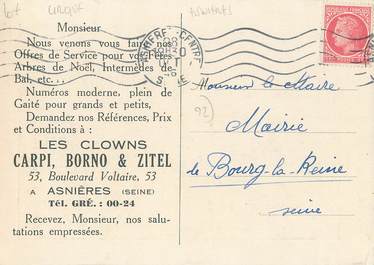 lot CIRQUE
ASNIERES
Monsieur
Nous venons vous faire nos
Offres de Service pour vos Fêtes
Arbres de Noël, Intermèdes de
Bal, etc...
Numéros moderne, plein de
Gaité pour grands et petits,
Demandez nos Références, Prix
et Conditions à :
LES CLOWNS
CARPI, BORNO & ZITEL
53, Boulevard Voltaire, 53
A ASNIÈRES (SEINE)
Tél. GRÉ. : 00-24
Recevez, Monsieur, nos salu-
tations empressées.
Monsieur le Maire
92)
Mairie
de Bourg-la-Reine
seine